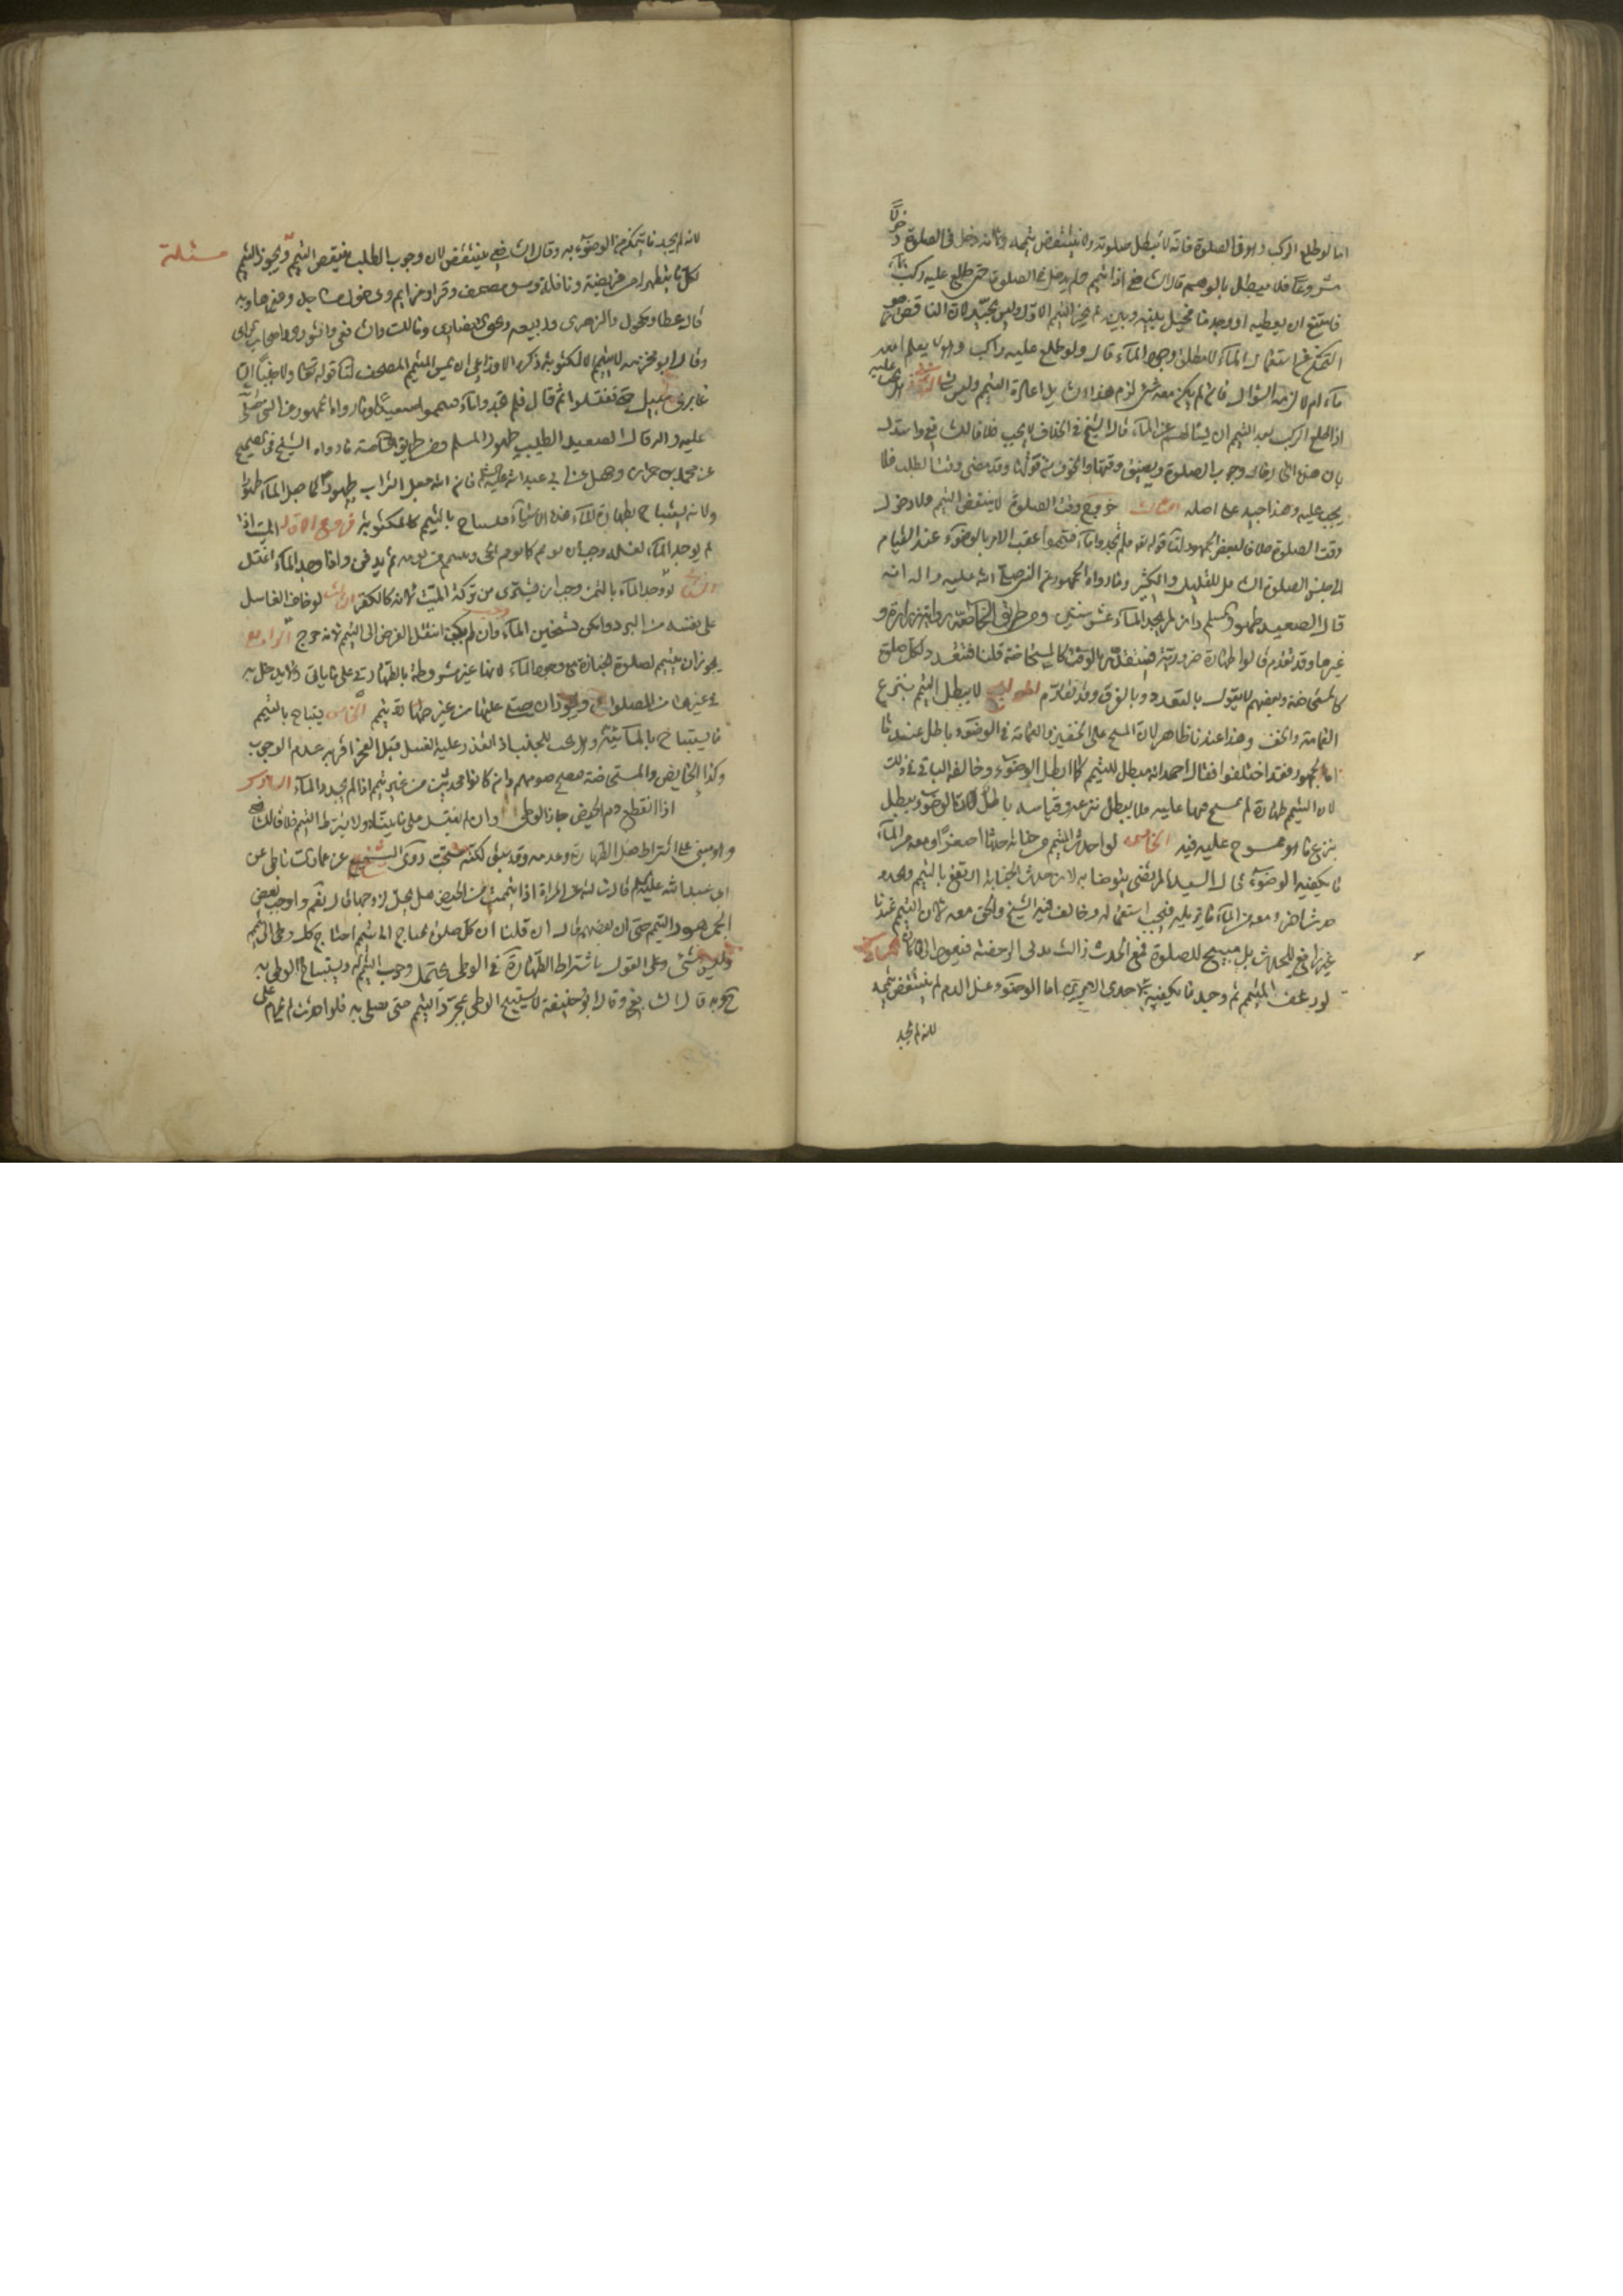 اما لو طلع الركب وهو في الصلوة فانه لا يبطل صلوته ولا ينتقض تيممه لانه دخل في الصلوة دخولا
مشروعا فلا يبطل بالوهم قال الشافعي اذا تيمم فلم يدخل في الصلوة حتى طلع عليه ركب بماء
فامتنع ان يعطيه او وجد ما فحيل بينه وبينه لم يجز التيمم الاول وليس بجيد لان الناقض هو
التمكن من استعمال الماء لا مطلق وجود الماء قال ولو طلع عليه راكب وهو لا يعلم امعه
ماء ام لا لزمه السؤال فان لم يكن معه شئ لزم هذا اعادة التيمم وليس
اذا طلع الركب بعد التيمم ان يسالهم عن الماء قال الشيخ في الخلاف لا يجب خلافا للشافعي واستدل
بان هذه الحال حال وجوب الصلوة وتضيق وقتها والخوف من فوتها وقد مضى وقت الطلب فلا
يجب عليه وهذا جيد على اصله الثالث خروج وقت الصلوة لا ينقض التيمم ولا دخول
وقت الصلوة خلافا لبعض الجمهور لنا قوله تعالى فلم تجدوا ماء فتيمموا عقب الامر بالوضوء عند القيام
الى جنس الصلوة الشامل للقليل والكثير وما رواه الجمهور عن النبي صلى الله عليه واله انه
قال الصعيد طهور المسلم وان لم يجد الماء عشر سنين ومن طريق الخاصة رواية زرارة و
غيرها وقد تقدم قالوا طهارة ضرورية فيتقدر بالوقت كالمستحاضة قلنا فتتعدد لكل صلوة
كالمستحاضة وبعضهم لا يقول بالتعدد وبالفرق وقد تقدم الرابع لا يبطل التيمم بنزع
العمامة والخف وهذا عندنا ظاهر لان المسح على الخفين والعمامة في الوضوء باطل عندنا
اما الجمهور فقد اختلفوا فقال احمد انه مبطل للتيمم كما ابطل الوضوء وخالفه الباقي في ذلك
لان التيمم طهارة لم يمسح فيها عليه فلا يبطل بنزعه وقياسه باطل لان الوضوء يبطل
بنزع ما هو ممسوح عليه فيه الخامس لو احدث المتيمم من جنابة حدثا اصغر ومعه من الماء
ما يكفيه الوضوء قال السيد المرتضى يتوضا به لان حدث الجنابة ارتفع بالتيمم وتجدد
حدث اصغر ومعه من الماء ما يزيله فيجب استعماله وخالف فيه الشيخ والحق معه لان التيمم عندنا
غير رافع للحدث بل مبيح للصلوة فمع الحدث زالت الرخصة فيعود الى ما كان السادس
لو رعف المتيمم ثم وجد ما يكفيه لاحدى الامرين اما الوضوء وغسل الدم لم ينتقض تيممه
لانه لم يجد
لانه لم يجد ما يتمكن من الوضوء به وقال الشافعي ينتقض لان وجوب الطلب ينقض التيمم ويجوز التيمم
مسئلة
لكل ما يتطهر له من فريضة ونافلة ومس مصحف وقراءة عزايم ودخول مساجد وغيرها وبه
قال عطا ومكحول والزهري وربيعة ويحيى الانصاري ومالك والشافعي والثوري واصحاب الراي
وقال ابو مخرمة لا يتيمم الا لمكتوبة وكره الاوزاعي ان يمس المتيمم المصحف لنا قوله تعالى ولا جنبا الا
عابري سبيل حتى تغتسلوا ثم قال فلم تجدوا ماء فتيمموا صعيدا وما رواه الجمهور عن النبي صلى الله
عليه واله قال الصعيد الطيب طهور المسلم ومن طريق الخاصة ما رواه الشيخ في الصحيح
عن محمد بن حمران وجميل عن ابي عبد الله عليه السلام فان الله جعل التراب طهورا كما جعل الماء طهورا
ولانه يستباح بطهارة الماء هذه الاشياء فيستباح بالتيمم كالمكتوبة فروع الاول الميت اذا
لم يوجد الماء لغسله وجب ان يومم كما يومم الحي وييمم من يومه ثم يدفن واذا وجد الماء اغتسل
الثاني لو وجد الماء بالثمن وجب ان يشترى من تركة الميت لانه كالكفن الثالث لو خاف الغاسل
على نفسه من البرد وامكن تسخين الماء وجب وان لم يمكن انتقل الفرض الى التيمم لانه حرج الرابع
يجوز ان يتيمم لصلوة الجنازة مع وجود الماء لانها غير مشروطة بالطهارة على ما ياتي ولا يدخل به
في غيرها من الصلوات ويجوز ان يصلي عليها من غير طهارة تيمم الخامس يستباح بالتيمم
ما يستباح بالمائية وهل يجب للجنب اذا تعذر عليه الغسل قبل الفجر اقربه عدم الوجوب
وكذا الحايض والمستحاضة فيصح صومهم وان كانوا محدثين من غير تيمم اذا لم يجدوا الماء السادس
اذا انقطع دم الحيض جاز الوطي وان لم تغتسل على ما بيناه ولا يشترط التيمم خلافا للشافعي
وهو مبني على اشتراط الطهارة وعدمه وقد سبق لكنه مستحب روى الشيخ عن عمار الساباطي عن
ابي عبد الله عليه السلام قال سالته عن المراة اذا تيممت من الحيض هل تحل لزوجها قال نعم واوجب بعض
الجمهور التيمم حتى ان بعضهم قال ان قلنا ان كل صلوة تحتاج الى تيمم احتاج كل وطي الى تيمم
وليس بشئ وعلى القول باشتراط الطهارة في الوطي يحتمل وجوب التيمم له ويستباح الوطي به
وبه قال الشافعي وقال ابو حنيفة لا يستبيح الوطي بمجرد التيمم حتى يصلي به فلو احدثت لم يحرم